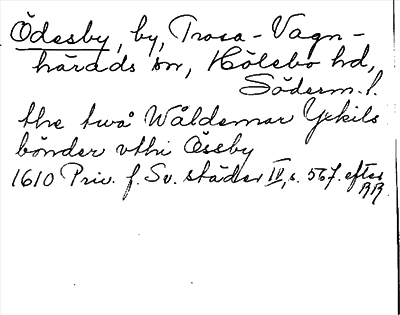 Ödesby, by, Trosa-Vagn-
härads sn, Hölebo hd,
Söderm. l.
the twå Wåldemar Yekils
bönder vthi Össby
1610 Priv. f. Sv. städer IV, s. 567. efter
RR